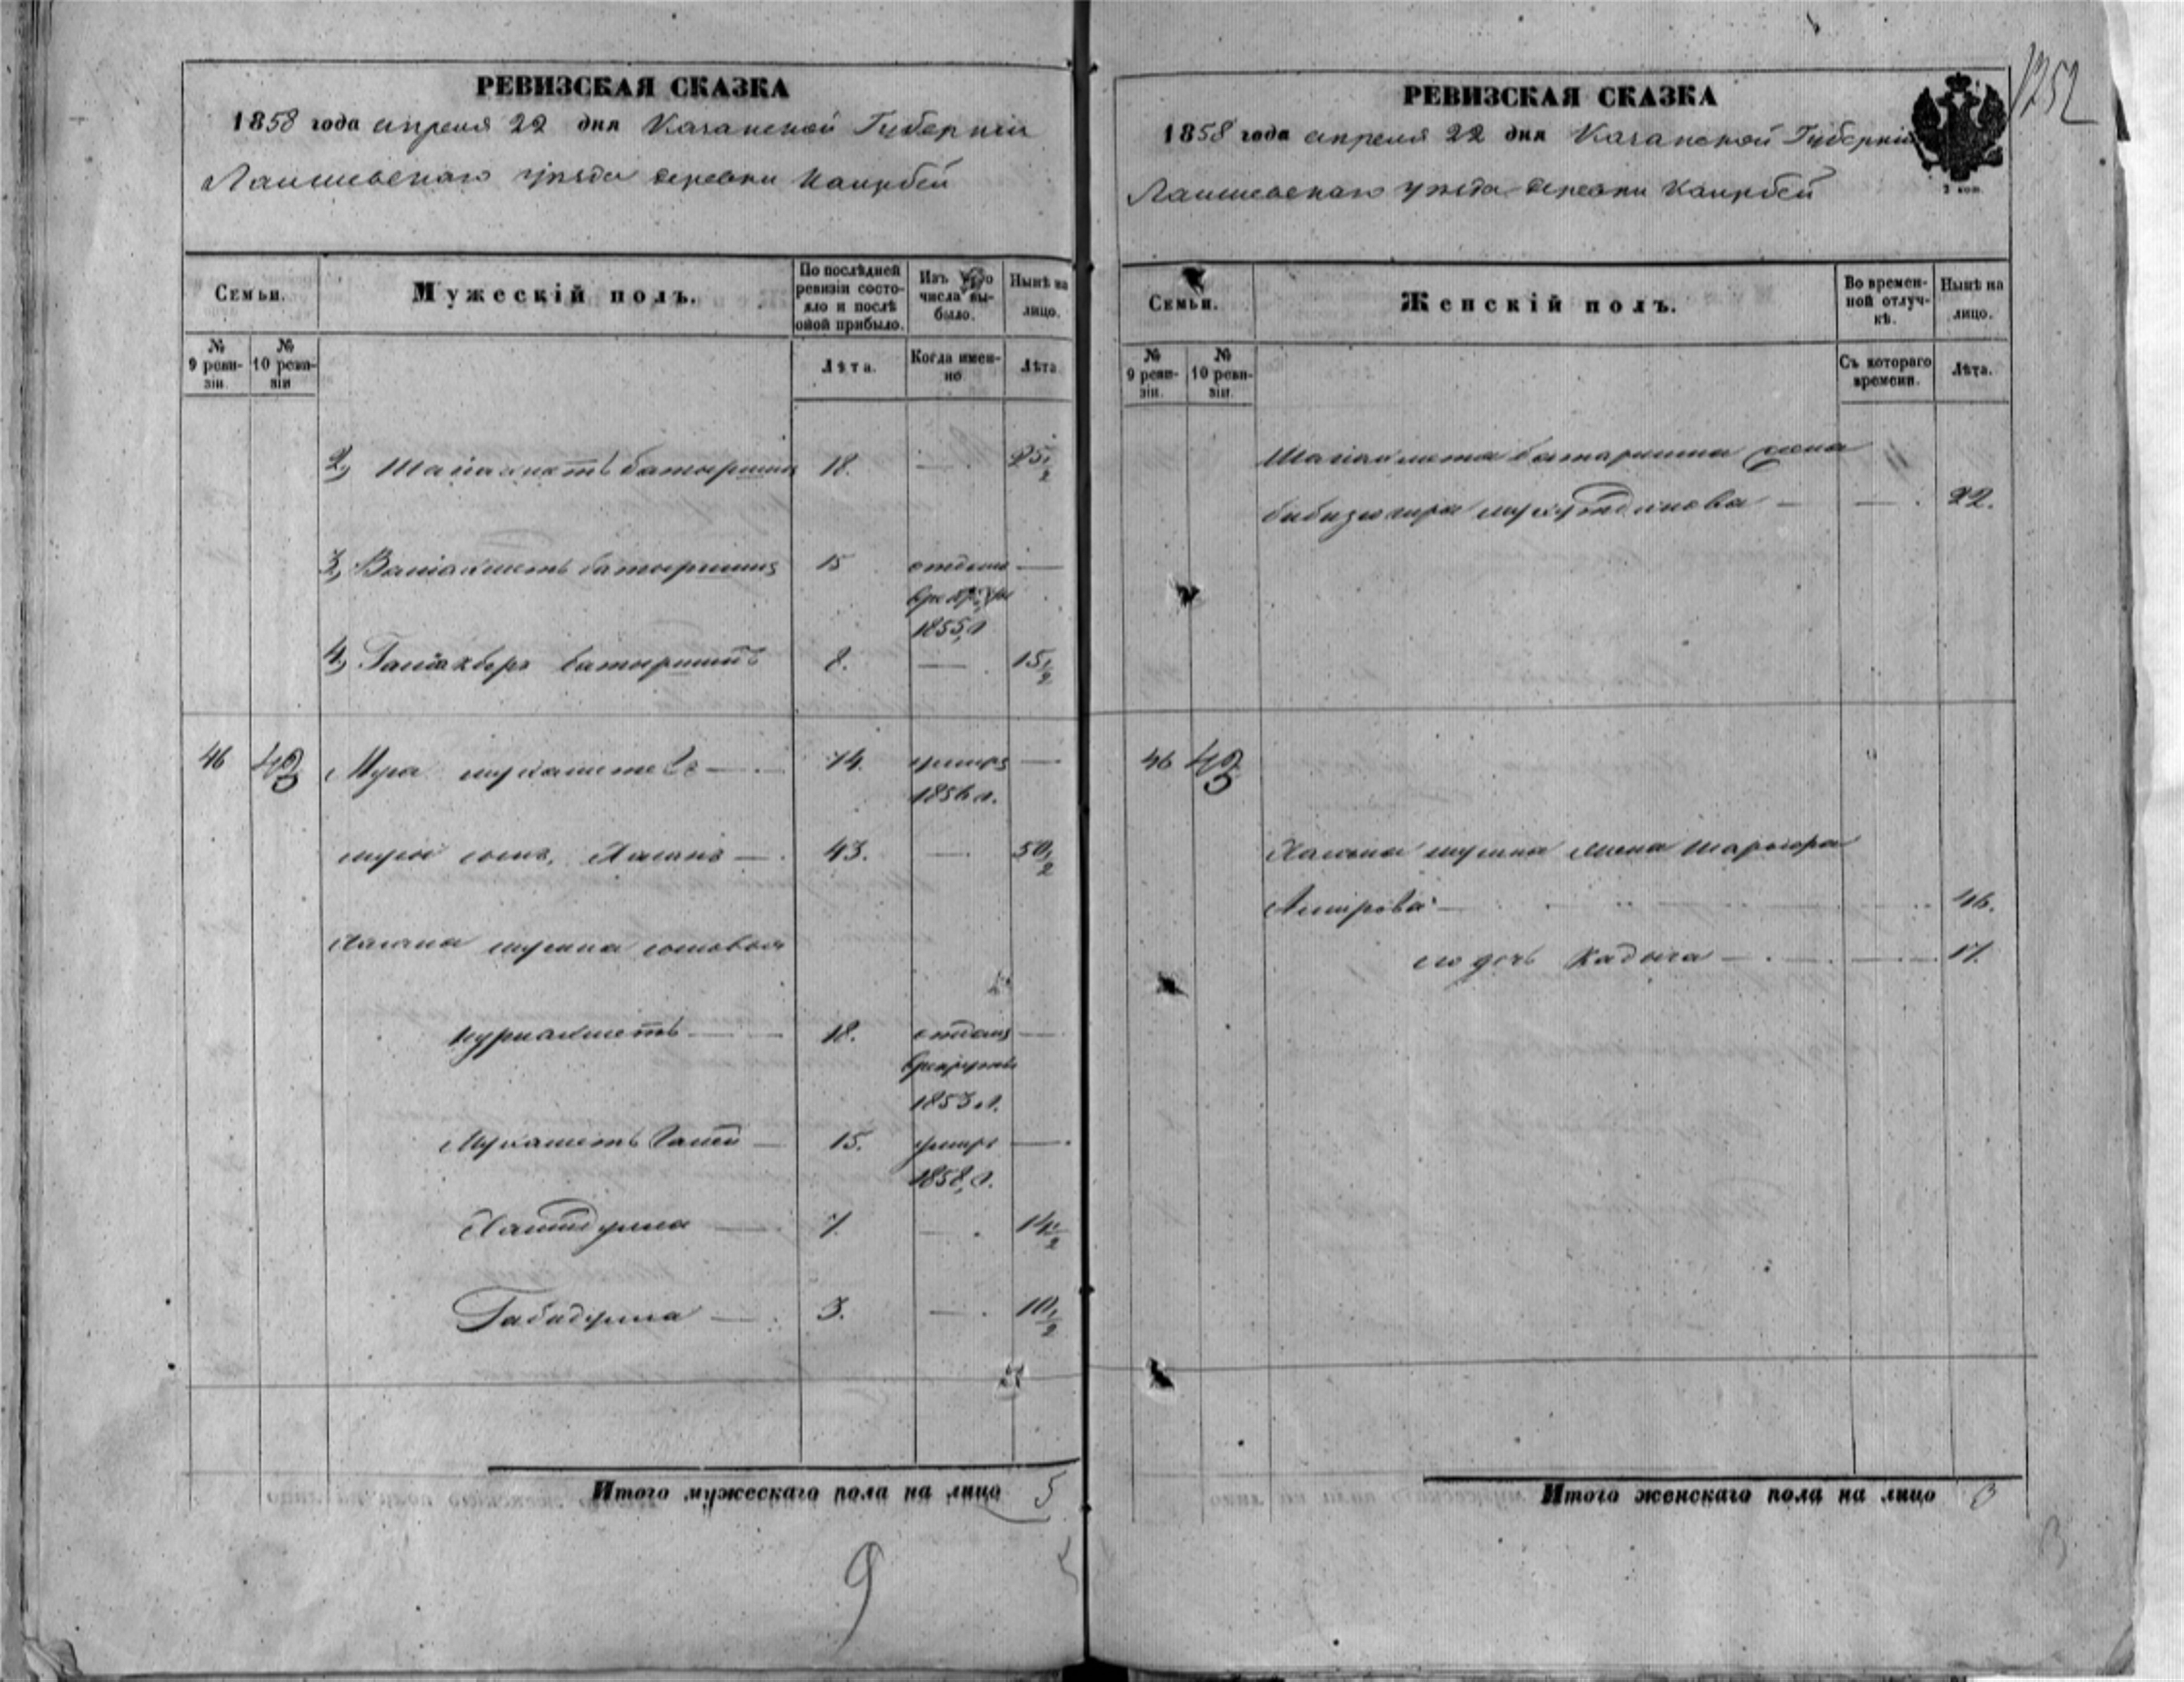 1252
РЕВИЗСКАЯ СКАЗКА
1858 года апреля 22 дня Казанской Губернiи
Лаишевскаго уѣзда деревни Каирбей
Семьи.
Мужескiй полъ.
По послѣдней ревизiи состояло и послѣ оной прибыло.
Изъ того числа выбыло.
Нынѣ на лицо.
№ 9 ревизiи.
№ 10 ревизiи
Лѣта.
Когда именно
Лѣта
2, Шагiахметъ батыршинъ 18. — 25 1/2
3, Валiахметъ батыршинъ 15 отданъ —
1855,г
4, батыршинъ 8. — 15 1/2
46 43 Муса мухаметевъ — 74. умеръ —
1856 г.
мусы сынъ, Хасанъ — 43. — 50 1/2
Хасана мусина сыновья
нурмахметъ — 18. отданъ —
в рекруты
1853 г.
Мухаметъ Галей — 15. умеръ —
1858,г.
— 7. — 14 1/2
Габидулла — 3. — 10 1/2
Итого мужескаго пола на лицо 5
9
РЕВИЗСКАЯ СКАЗКА
1858 года апреля 22 дня Казанской Губернiи
Лаишевскаго уѣзда деревни Каирбей
Семьи.
Женскiй полъ.
Во временной отлучкѣ.
Нынѣ на лицо.
№ 9 ревизiи.
№ 10 ревизiи.
Съ котораго времени.
Лѣта.
Шагiахмета батыршина жена
— — 22.
46 43
Хасана мусина жена
Амирова — 46.
его дочь Кадыча — — 17.
Итого женскаго пола на лицо 3
3